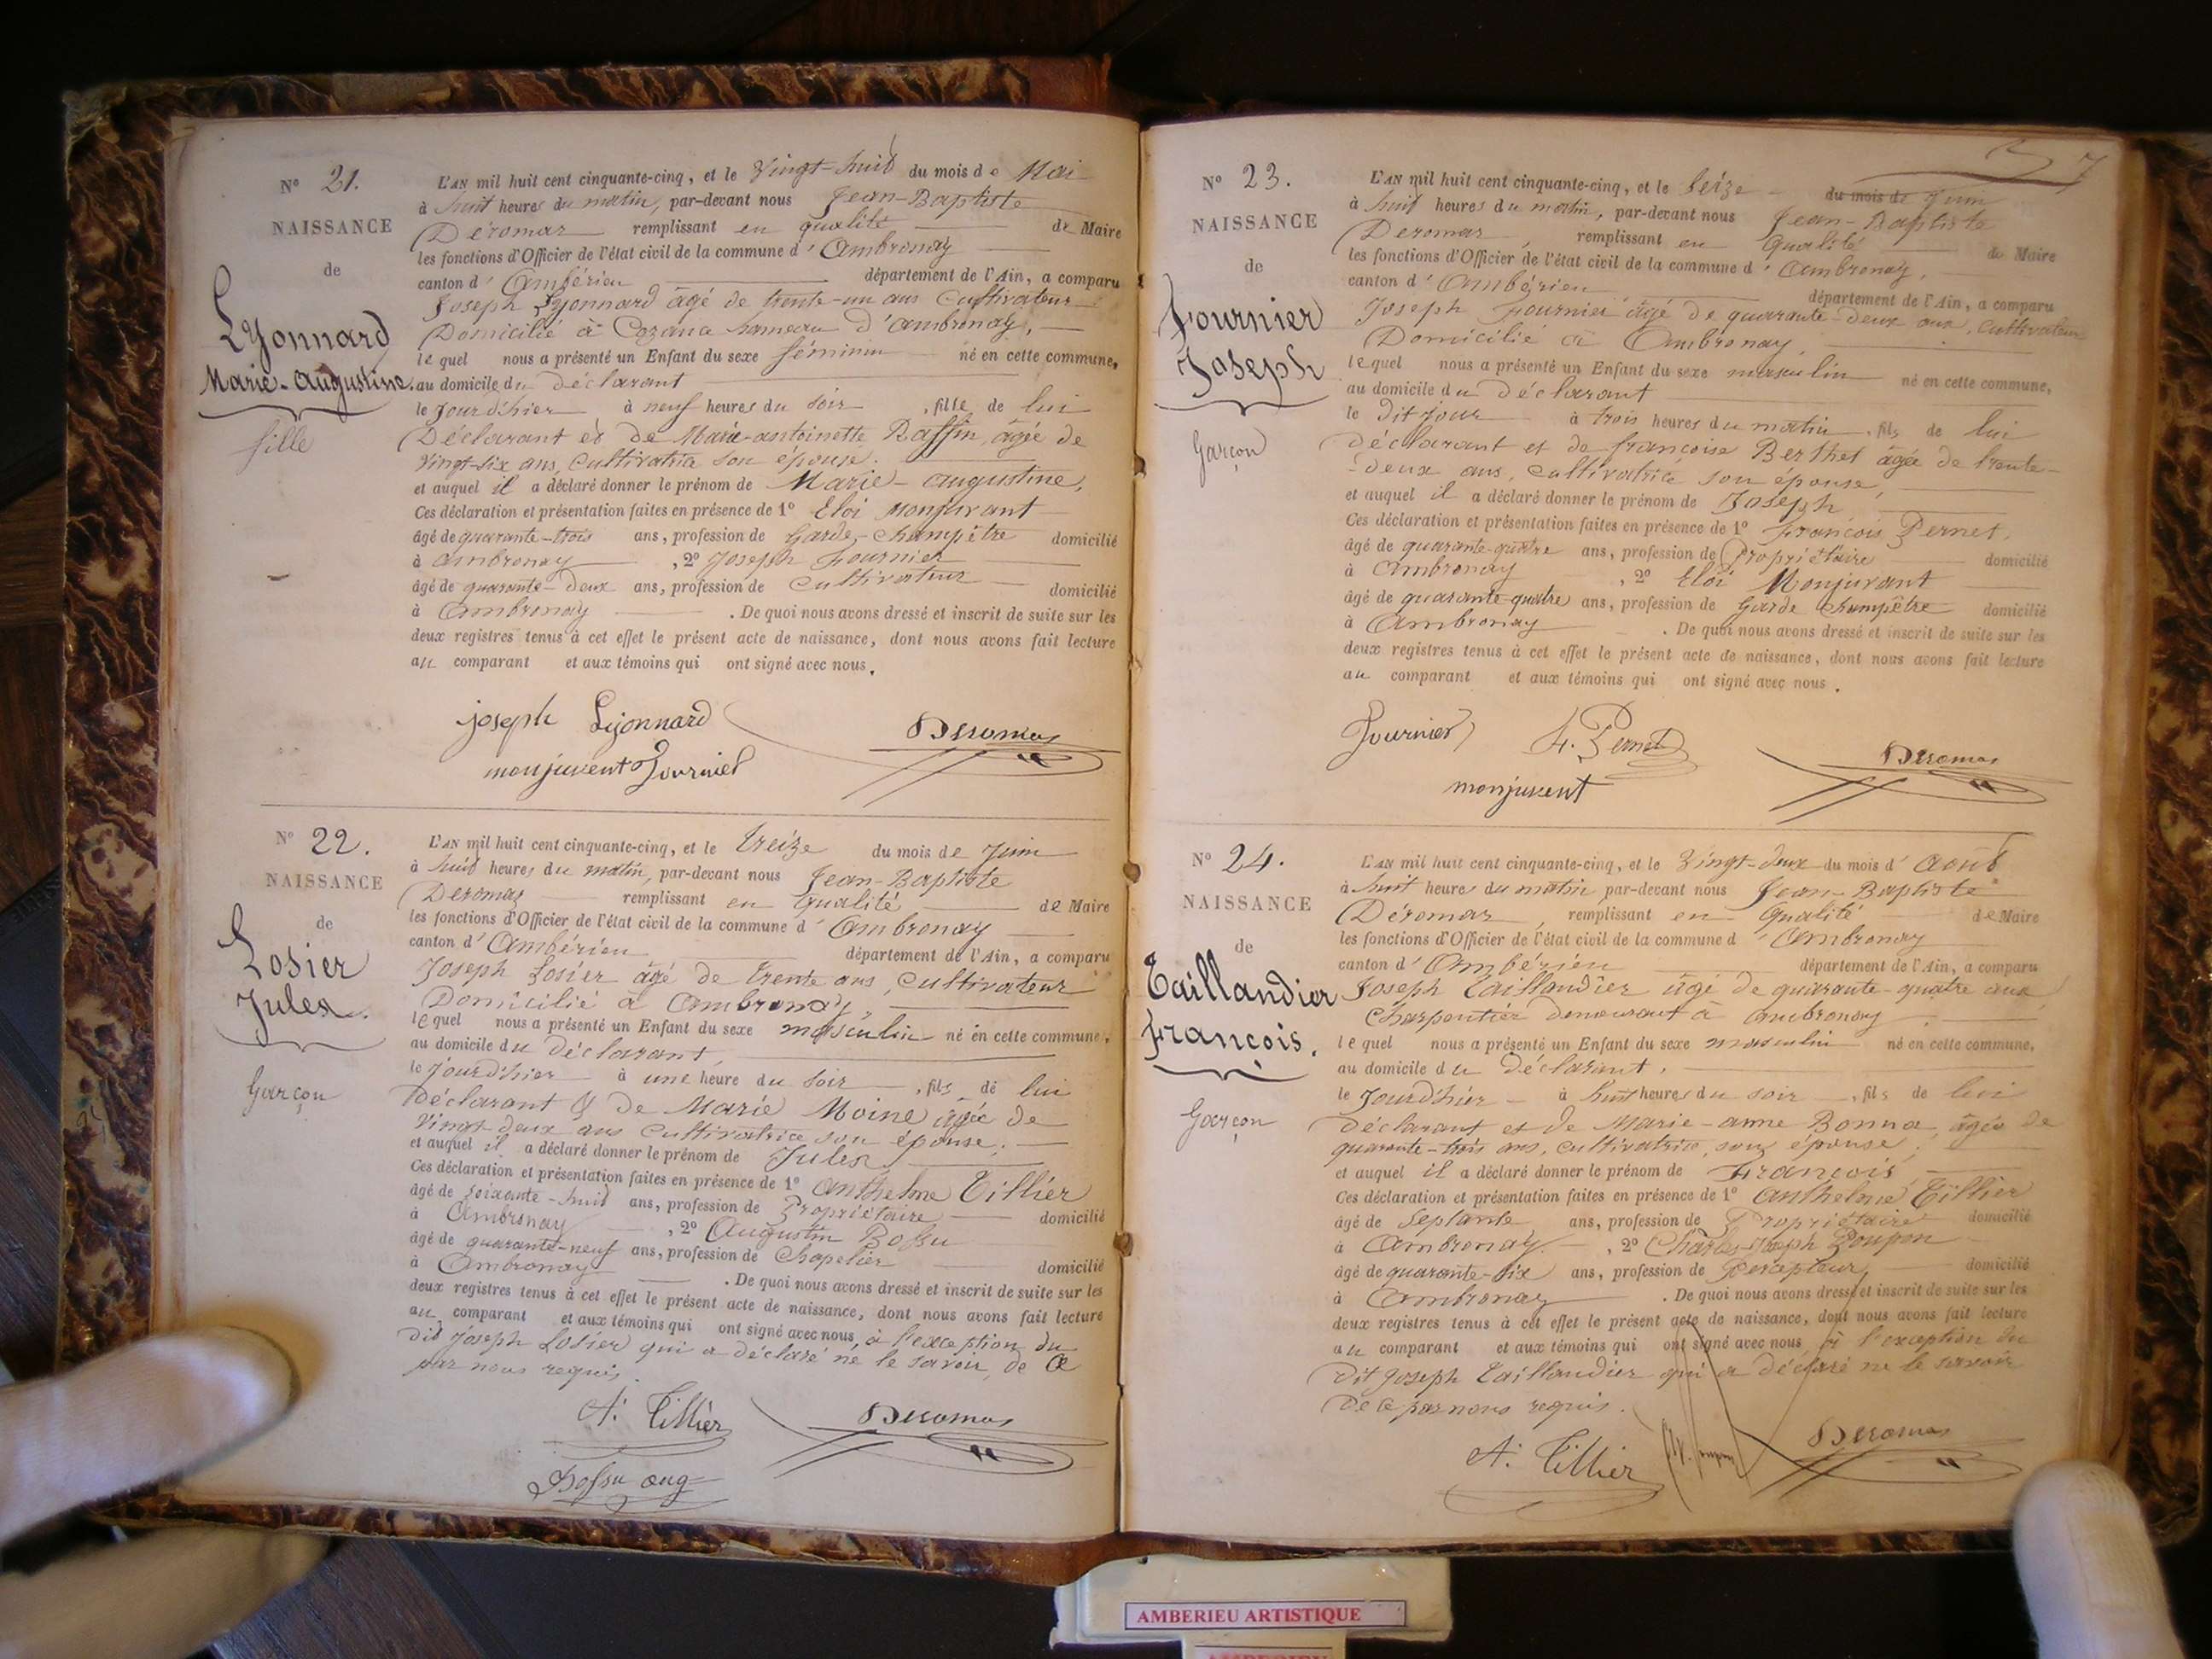 Nº 21.
NAISSANCE
de
Lyonnard
Marie-Augustine.
fille
L'AN mil huit cent cinquante-cinq, et le Vingt-huit du mois de Mai
à huit heures du matin, par-devant nous Jean-Baptiste
Deromas remplissant en qualité de Maire
les fonctions d'Officier de l'état civil de la commune d'Ambronay
canton d'Ambérieu département de l'Ain, a comparu
Joseph Lyonnard âgé de trente-un ans Cultivateur
Domicilié à Cozance hameau d'ambronay,
lequel nous a présenté un Enfant du sexe féminin né en cette commune,
au domicile du déclarant
le jourd'hier à neuf heures du soir, fille de lui
Déclarant et de Marie-antoinette Raffin âgée de
Vingt-six ans, Cultivatrice son épouse.
et auquel il a déclaré donner le prénom de Marie-augustine,
Ces déclaration et présentation faites en présence de 1º Eloi Monjuvant
âgé de quarante-trois ans, profession de Garde-Champêtre domicilié
à ambronay, 2º Joseph Fournier
âgé de quarante-deux ans, profession de Cultivateur domicilié
à Ambronay. De quoi nous avons dressé et inscrit de suite sur les
deux registres tenus à cet effet le présent acte de naissance, dont nous avons fait lecture
au comparant et aux témoins qui ont signé avec nous.
joseph Lyonnard Deromas
monjuvent Fournier
Nº 22.
NAISSANCE
de
Losier
Jules.
Garçon
L'AN mil huit cent cinquante-cinq, et le treize du mois de Juin
à huit heures du matin, par-devant nous Jean-Baptiste
Deromas remplissant en qualité de Maire
les fonctions d'Officier de l'état civil de la commune d'Ambronay
canton d'Ambérieu département de l'Ain, a comparu
Joseph Losier âgé de trente ans, Cultivateur
Domicilié à Ambronay,
lequel nous a présenté un Enfant du sexe masculin né en cette commune,
au domicile du Déclarant,
le jourd'hier à une heure du soir, fils de lui
Déclarant & de Marie Moine âgée de
Vingt-deux ans Cultivatrice son épouse,
et auquel il a déclaré donner le prénom de Jules
Ces déclaration et présentation faites en présence de 1º Anthelme Tillier
âgé de soixante-huit ans, profession de Propriétaire domicilié
à Ambronay, 2º Augustin Bossu
âgé de quarante-neuf ans, profession de Chapelier domicilié
à Ambronay. De quoi nous avons dressé et inscrit de suite sur les
deux registres tenus à cet effet le présent acte de naissance, dont nous avons fait lecture
au comparant et aux témoins qui ont signé avec nous, à l'exception du
dit Joseph Losier qui a déclaré ne le savoir, de ce
par nous requis.
A. Tillier Deromas
Bossu aug
7
Nº 23.
NAISSANCE
de
Fournier
Joseph
Garçon
L'AN mil huit cent cinquante-cinq, et le Seize du mois de Juin
à huit heures du matin, par-devant nous Jean-Baptiste
Deromas, remplissant en Qualité de Maire
les fonctions d'Officier de l'état civil de la commune d'Ambronay,
canton d'Ambérieu département de l'Ain, a comparu
Joseph Fournier âgé de quarante-deux ans, cultivateur
Domicilié à Ambronay,
lequel nous a présenté un Enfant du sexe masculin né en cette commune,
au domicile du Déclarant
le dit jour à trois heures du matin, fils de lui
déclarant et de françoise Berthet âgée de trente-
deux ans, cultivatrice son épouse,
et auquel il a déclaré donner le prénom de Joseph
Ces déclaration et présentation faites en présence de 1º François Pernet,
âgé de quarante-quatre ans, profession de Propriétaire domicilié
à Ambronay, 2º Eloi Monjuvant
âgé de quarante-quatre ans, profession de Garde Champêtre domicilié
à Ambronay. De quoi nous avons dressé et inscrit de suite sur les
deux registres tenus à cet effet le présent acte de naissance, dont nous avons fait lecture
au comparant et aux témoins qui ont signé avec nous.
Fournier F. Pernet Deromas
monjuvent
Nº 24.
NAISSANCE
de
Taillandier
François.
Garçon
L'AN mil huit cent cinquante-cinq, et le Vingt-deux du mois d'Août
à huit heures du matin par-devant nous Jean-Baptiste
Déromas, remplissant en Qualité de Maire
les fonctions d'Officier de l'état civil de la commune d'Ambronay
canton d'Ambérieu département de l'Ain, a comparu
Joseph Taillandier âgé de quarante-quatre ans
Charpentier demeurant à Ambronay
lequel nous a présenté un Enfant du sexe masculin né en cette commune,
au domicile du Déclarant,
le Jourd'hier à huit heures du soir, fils de lui
Déclarant et de Marie-anne Bonna, âgée de
quarante-trois ans, cultivatrice, son épouse,
et auquel il a déclaré donner le prénom de François
Ces déclaration et présentation faites en présence de 1º Anthelme Tillier
âgé de Septante ans, profession de Propriétaire domicilié
à Ambronay, 2º Charles-Joseph Poupon
âgé de quarante-six ans, profession de Percepteur, domicilié
à Ambronay. De quoi nous avons dressé et inscrit de suite sur les
deux registres tenus à cet effet le présent acte de naissance, dont nous avons fait lecture
au comparant et aux témoins qui ont signé avec nous à l'exception du
dit Joseph Taillandier qui a déclaré ne le savoir
De ce par nous requis.
A. Tillier Deromas
AMBERIEU ARTISTIQUE